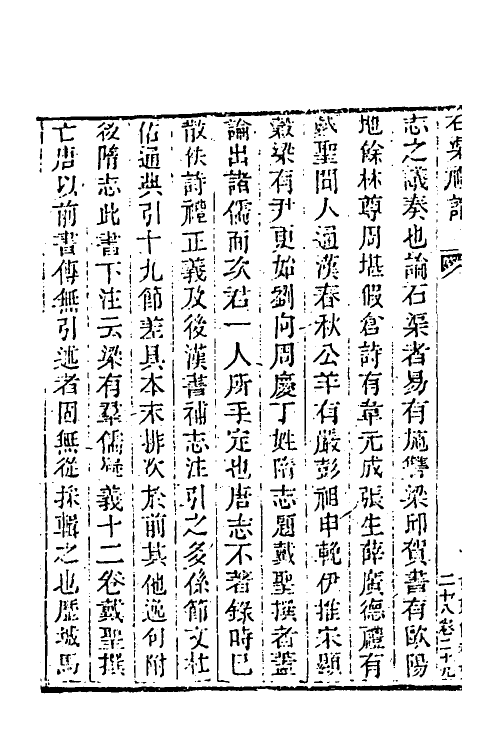 石渠禮論
志之議奏也論石渠者易有施讎梁邱賀書有歐陽
地餘林尊周堪假倉詩有韋元成張生薛廣德禮有
戴聖聞人通漢春秋公羊有嚴彭祖申輓伊推宋顯
穀梁有尹更始劉向周慶丁姓隋志題戴聖撰者蓋
論出諸儒而次君一人所手定也唐志不著錄時已
散佚詩禮正義及後漢書補志注引之多係節文杜
佑通典引十九節差具本末排次於前其他逸句附
後隋志此書下注云梁有羣儒疑義十二卷戴聖撰
亡唐以前書傳無引述者固無從採輯之也歷城馬